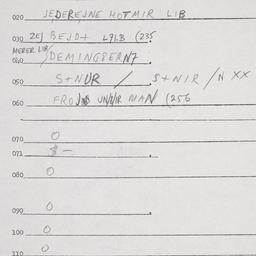 020 JEDEREJNE HOTMIR LIB
030 ZEJ BEJD+ L91.B (235
MERER LIB
040 /DEMINGBERN7
050 S+NUR / S+NIR / N XX
060 FROJ UN/IR MAN (256
070 0
071
080 0
090 0
100 0
110 0